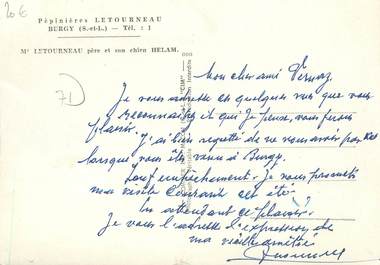 20 €
Pépinières LETOURNEAU
BURGY (S.-et-L.) — Tél. : 1
Mr LETOURNEAU père et son chien HELAM.
71
"CIM"
Interdite
Mon cher ami
Je vous adresse ces quelques vues que vous
reconnaissez et qui je pense, vous feront
plaisir.
J'ai bien regretté de ne vous avoir pas
lorsque vous êtes venu à Burgy.
Sauf empêchement. Je vous promets
ma visite courant cet été.
En attendant ce plaisir.
Je vous l'adresse l'expression de
ma vieille amitié